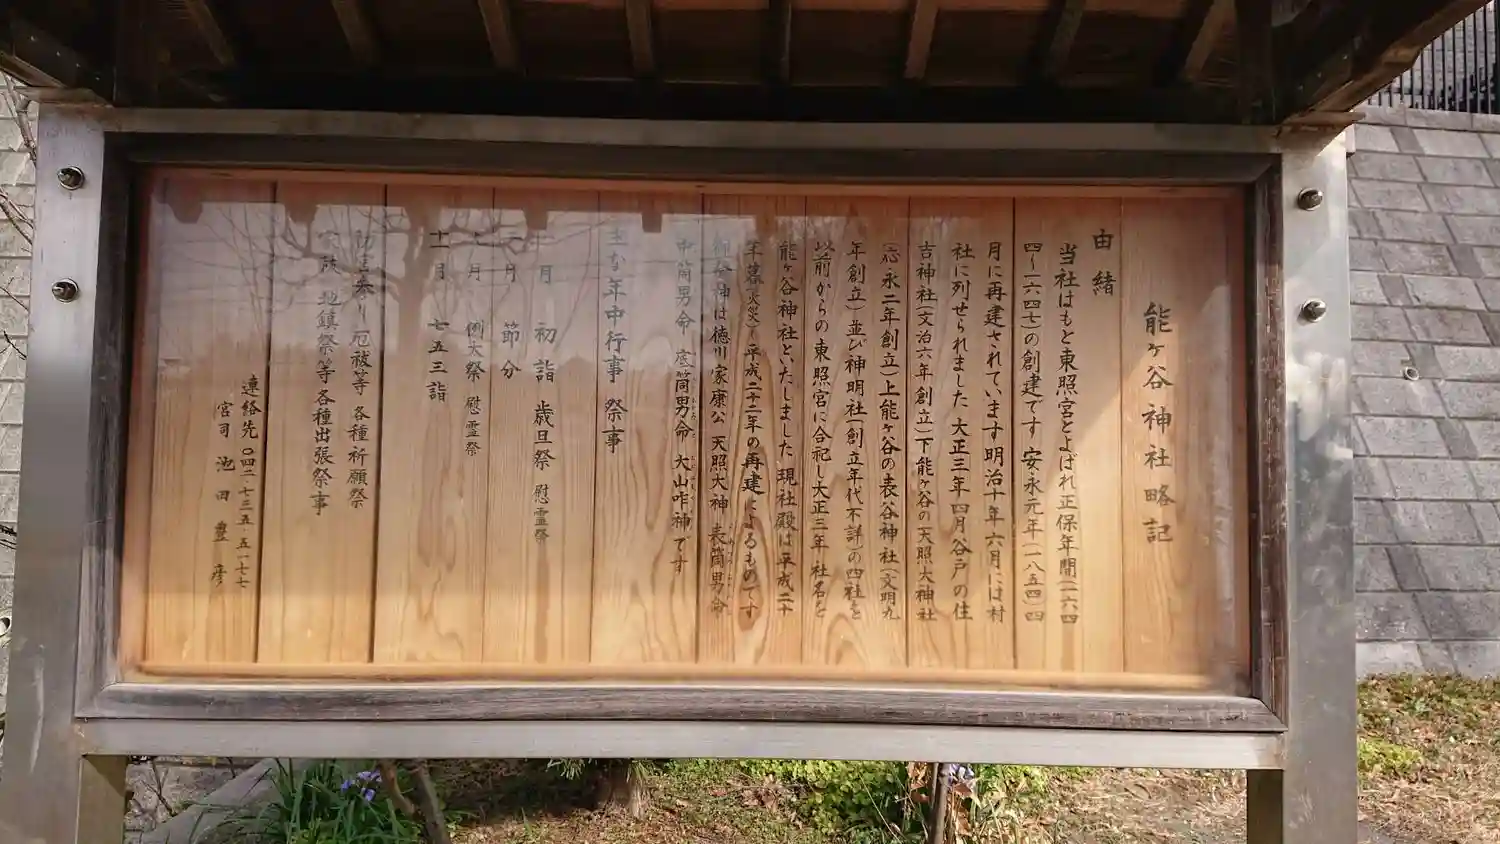 能ヶ谷神社略記
由緒
当社はもと東照宮とよばれ正保年間(一六四
四～一六四七)の創建です 安永元年(一八五四)四
月に再建されています 明治十年六月には村
社に列せられました 大正三年四月谷戸の住
吉神社(文治六年創立)下能ヶ谷の天照大神社
(応永二年創立)上能ヶ谷の表谷神社(文明九
年創立)並び神明社(創立年代不詳)の四社を
以前からの東照宮に合祀し大正三年社名を
能ヶ谷神社といたしました 現社殿は平成二十
年暮(火災)平成二十二年の再建によるものです
御祭神は徳川家康公 天照大神 表筒男命
中筒男命 底筒男命 大山咋神です
主な年中行事 祭事
一月 初詣 歳旦祭 慰霊祭
二月 節分
七月 例大祭 慰霊祭
十一月 七五三詣
初宮参り 厄祓等 各種祈願祭
家祓 地鎮祭等各種出張祭事
連絡先 〇四二・七三五・五一七七
宮司 池田豊彦